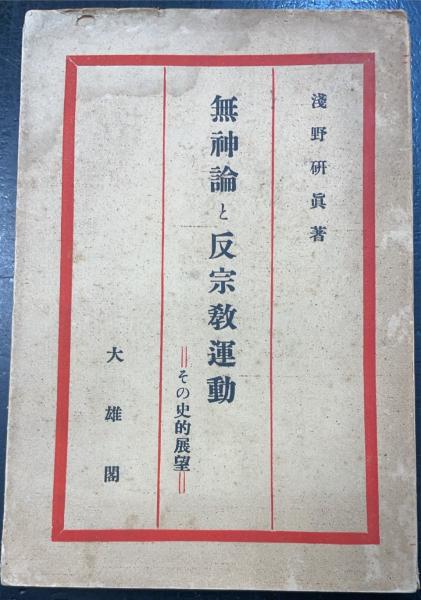 淺野研眞著
無神論と反宗教運動
＝その史的展望＝
大雄閣